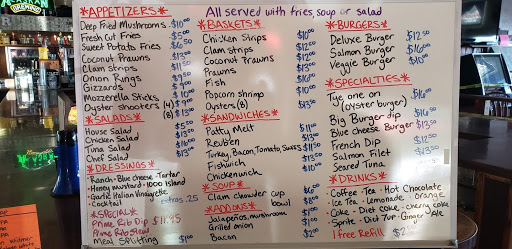 ALASKAN
BREWING
All served with fries, soup or salad
*APPETIZERS*
Deep Fried Mushrooms $10.00
Fresh Cut Fries $5.50
Sweet Potato Fries $6.50
Coconut Prawns $13.50
Clam strips $11.50
Onion Rings $9.50
Gizzards $9.00
Mozzerella Sticks $10.00
Oyster shooters (4) $9.00
(8) $13.00
*SALADS*
House Salad $5.50
Chicken Salad $13.00
Tuna Salad $16.00
Chef Salad $13.50
*DRESSINGS*
·Ranch·Blue cheese·Tartar
·Honey mustard·1000 Island
·Garlic Italian Vinaigrette
·Cocktail extras .25
*SPECIAL*
Prime Rib Dip $11.95
Prime Rib Stew
Meal Splitting $1.00
*BASKETS*
Chicken Strips $10.00
Clam strips $12.00
Coconut Prawns $13.00
Prawns
Fish
Popcorn shrimp
Oysters (8)
*SANDWICHES*
Patty Melt $11.00
Reuben
Turkey, Bacon, Tomato, Swiss
Fishwich
Chickenwich
*SOUP*
Clam chowder cup $6.00
bowl $8.00
*ADD ONS*
Jalapeños, mushrooms
Grilled onion
Bacon
*BURGERS*
Deluxe Burger $12.50
Salmon Burger $16.00
Veggie Burger $10.00
*SPECIALTIES*
Tye one on
(oyster burger) $16.00
Big Burger dip $16.50
Blue cheese Burger $13.50
French Dip $12.50
Salmon Filet $13.50
Seared Tuna
*DRINKS*
·Coffee·Tea·Hot Chocolate
·Ice Tea·Lemonade·Orange
·Coke·Diet coke·cherry coke
·Sprite·Diet 7up·Ginger Ale
1 free Refill $2.50